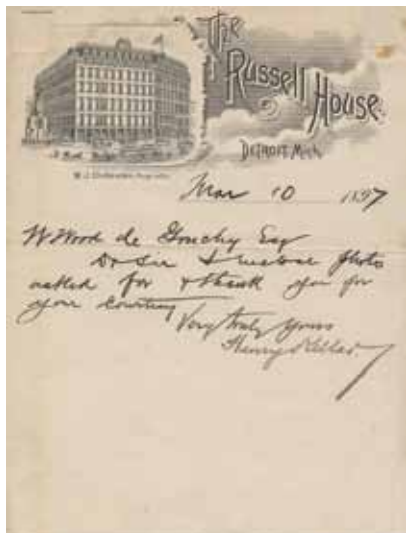 The
Russell House.
Detroit, Mich.
Mar 10 1897
W Wood de
Dr Sir I enclose photo
asked for & thank you for
your courtesy
Very truly yours
Henry